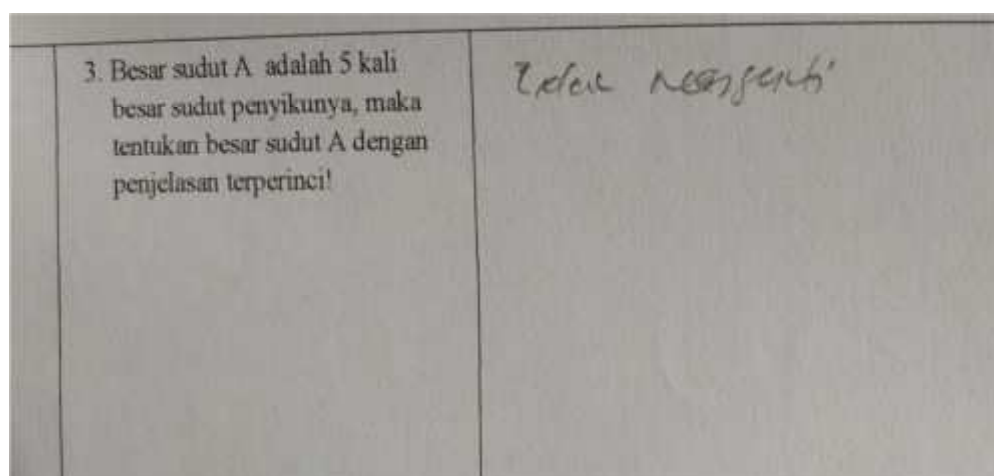 3. Besar sudut A adalah 5 kali
besar sudut penyikunya, maka
tentukan besar sudut A dengan
penjelasan terperinci!
Tidak mengerti